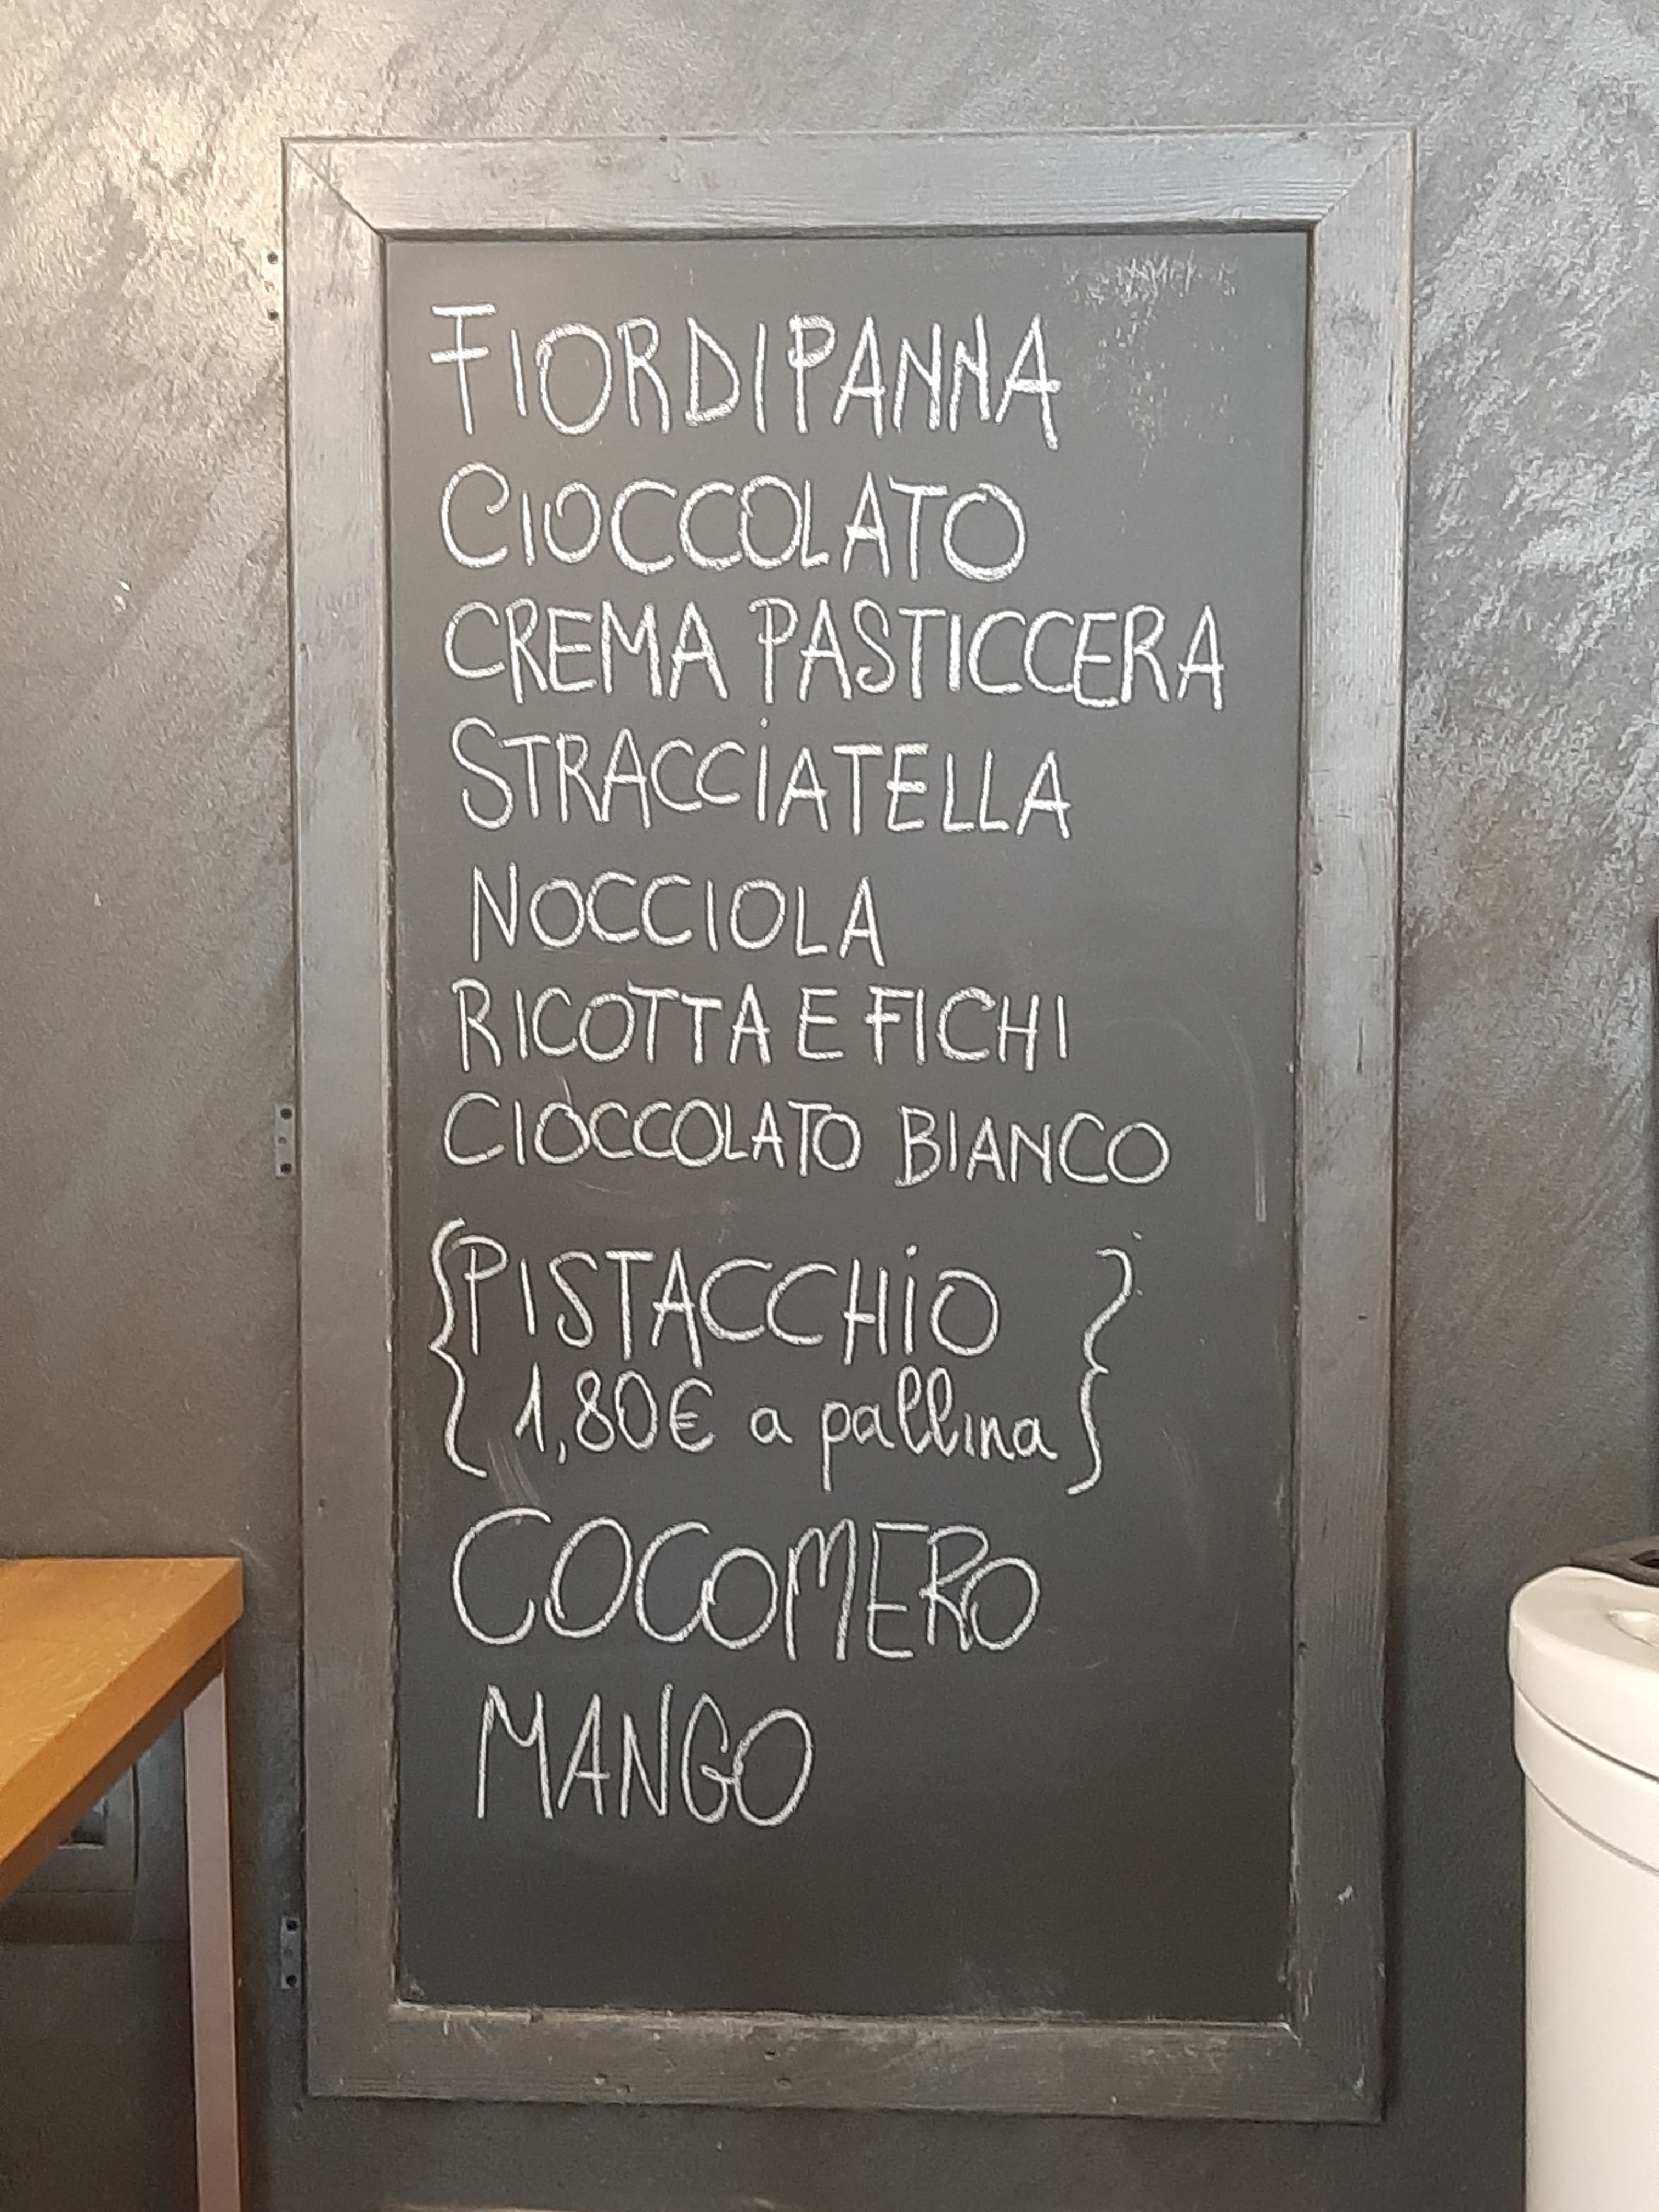 FIORDIPANNA
CIOCCOLATO
CREMA PASTICCERA
STRACCIATELLA
NOCCIOLA
RICOTTA E FICHI
CIOCCOLATO BIANCO
{PISTACCHIO
1,80€ a pallina}
COCOMERO
MANGO